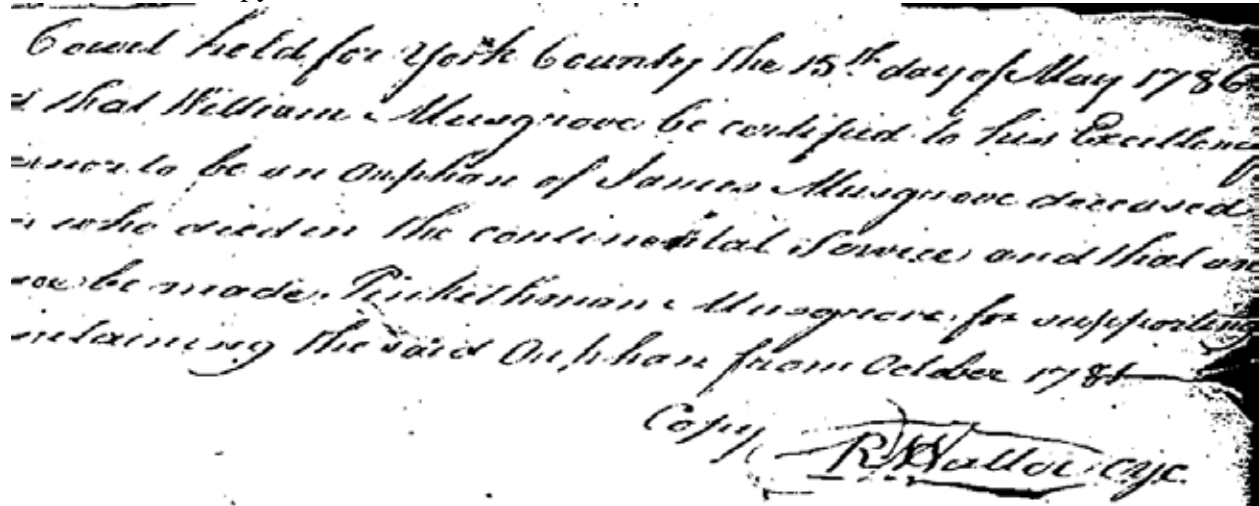 Court held for York County the 15th day of May 1786
that William Musgrove be certified to his Excellency
to be an Orphan of James Musgrove deceased
who died in the continental Service and that an
be made Pinkethman Musgrove for supporting
the said Orphan from October 1781
Copy RWaller CYC